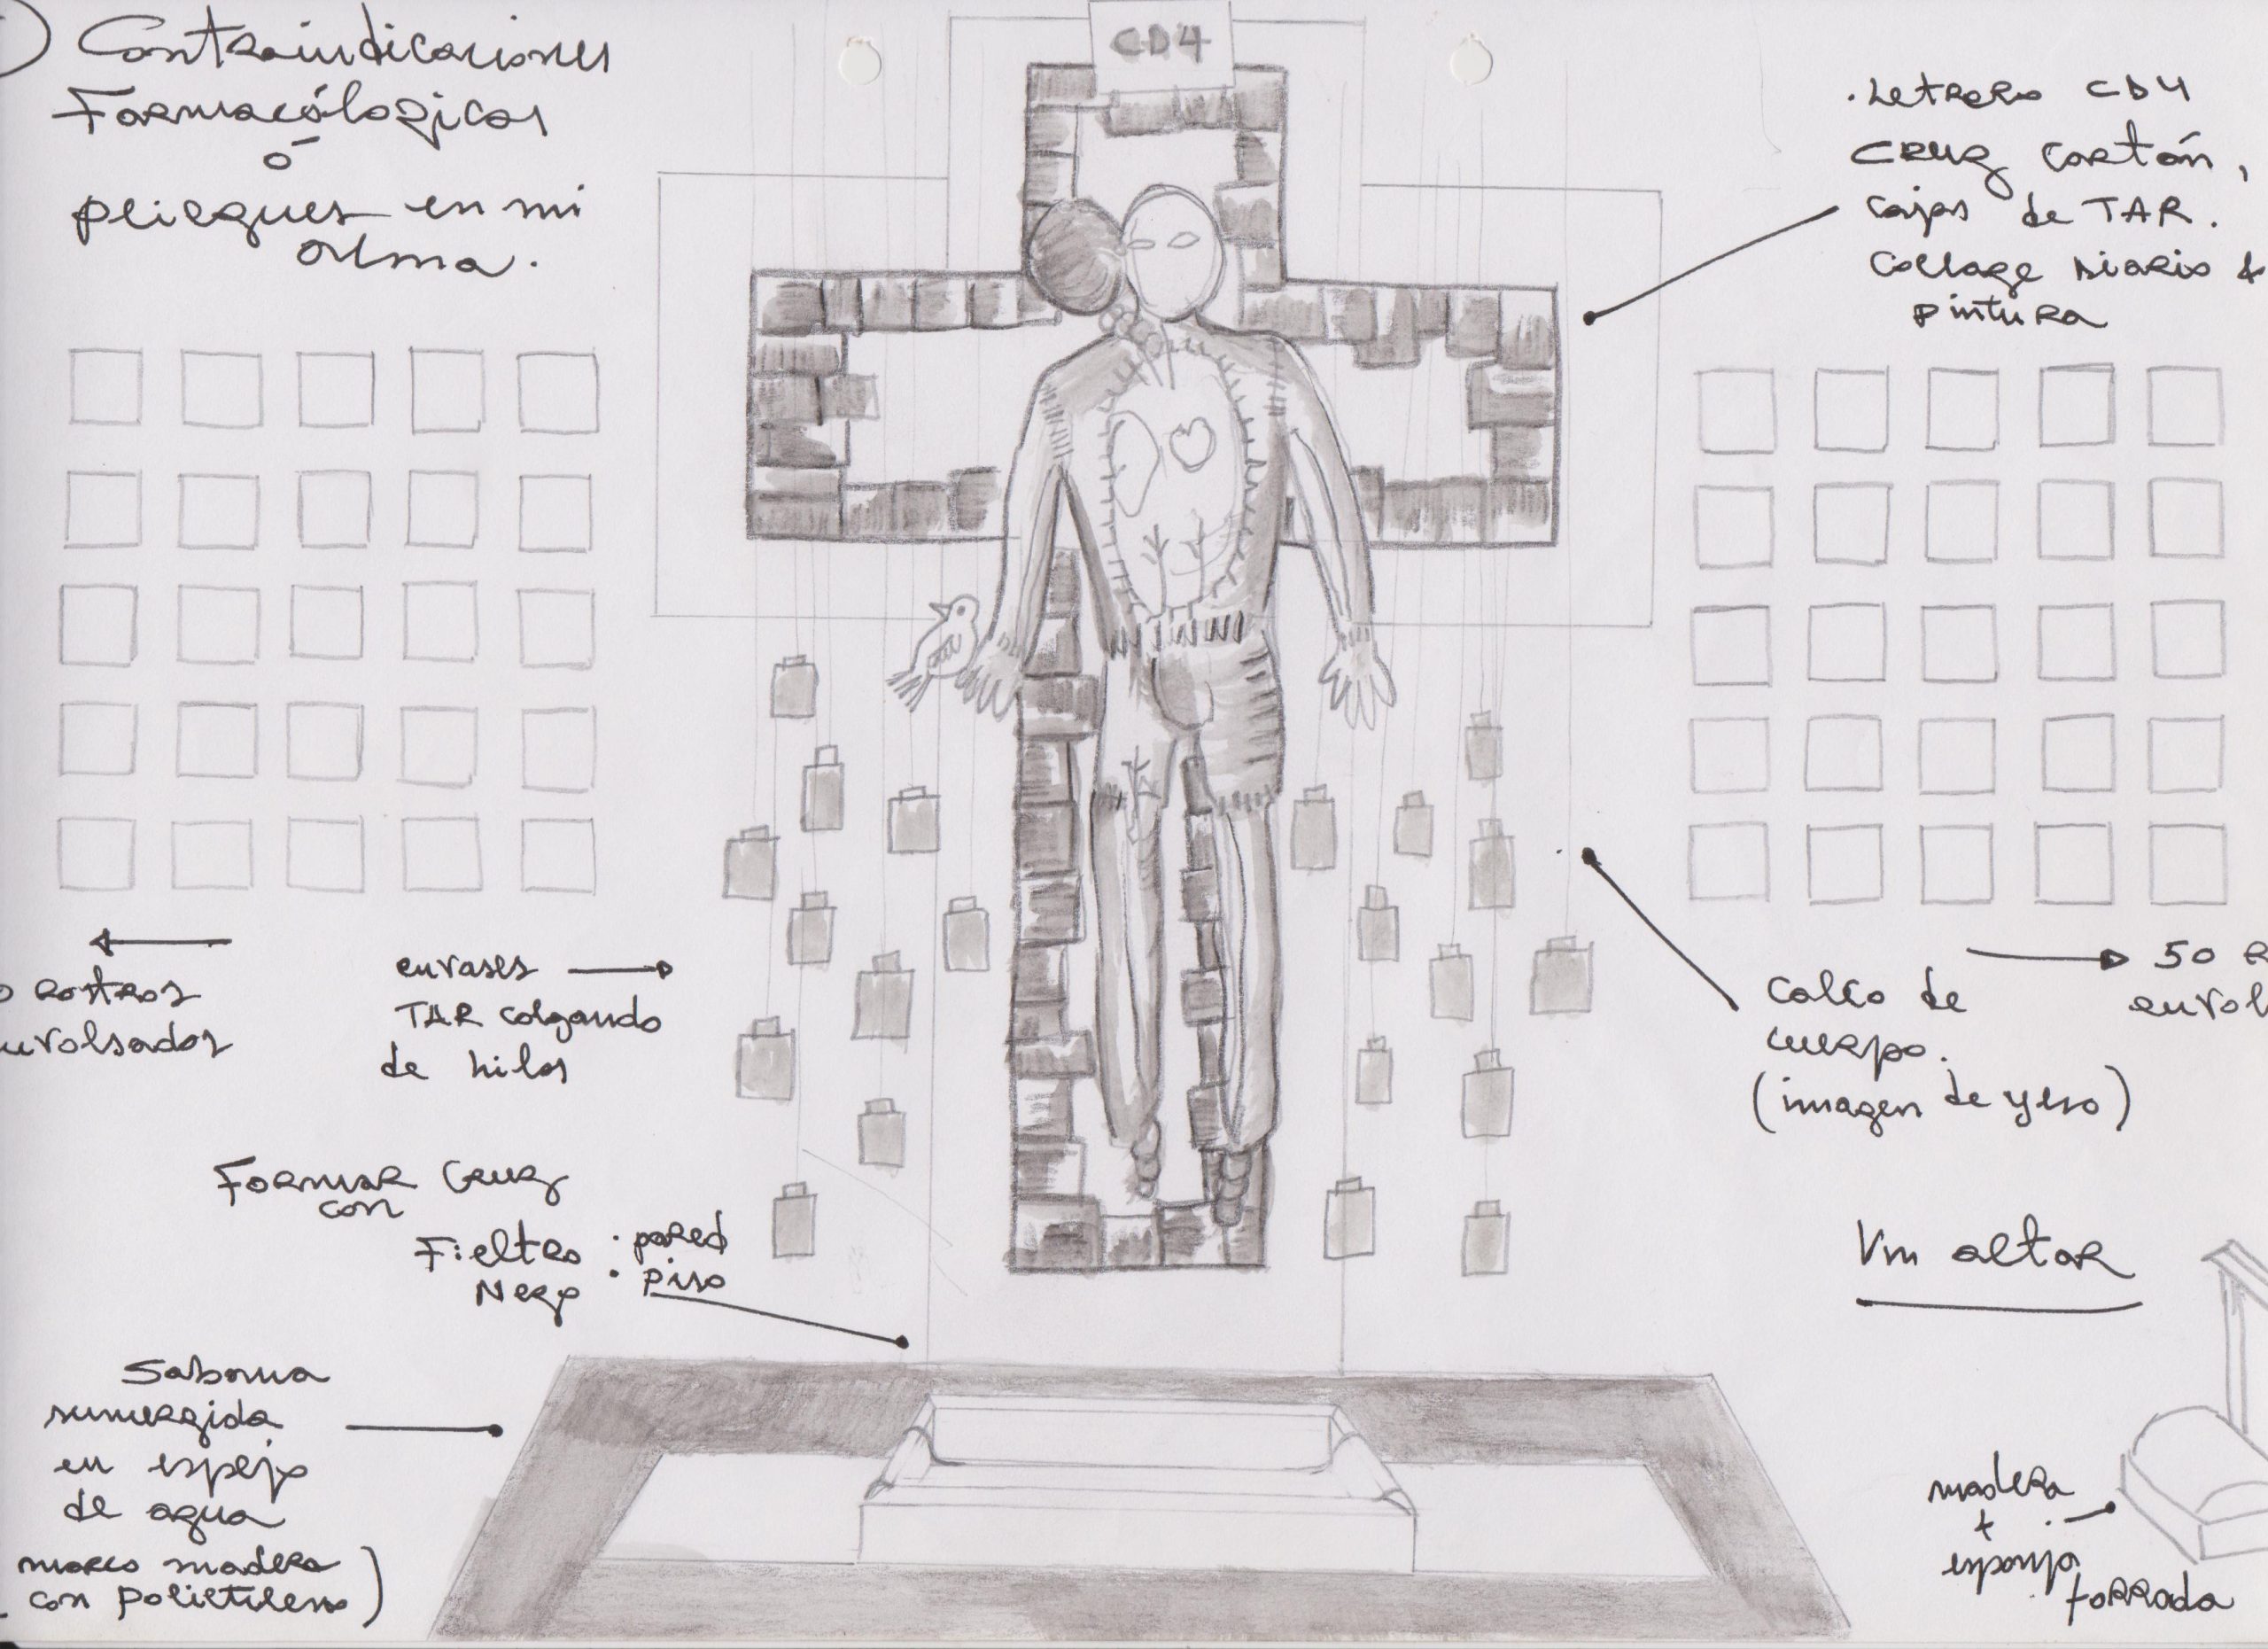 Contraindicaciones
Farmacólogicas
ó
pliegues en mi
alma.
CD4
. Letrero CD4
Cruz Cartón,
cajas de TAR.
Collage diario &
pintura
rostros
envases
TAR colgando
de hilos
50
Calco de
cuerpo.
(imagen de yeso)
Formar Cruz
con
Fieltro · pared
Negro · piso
Un altar
Sabana
sumergida
en espejo
de agua
marco madera
con polietileno)
madera
+
esponja
forrada